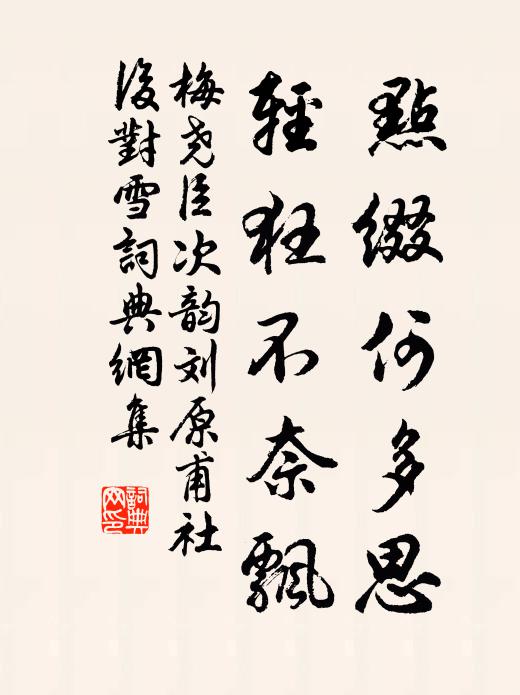 點綴何多思
輕狂不奈飄
梅尧臣次韵刘原甫社
後對雪詞典網集
詞典
网印